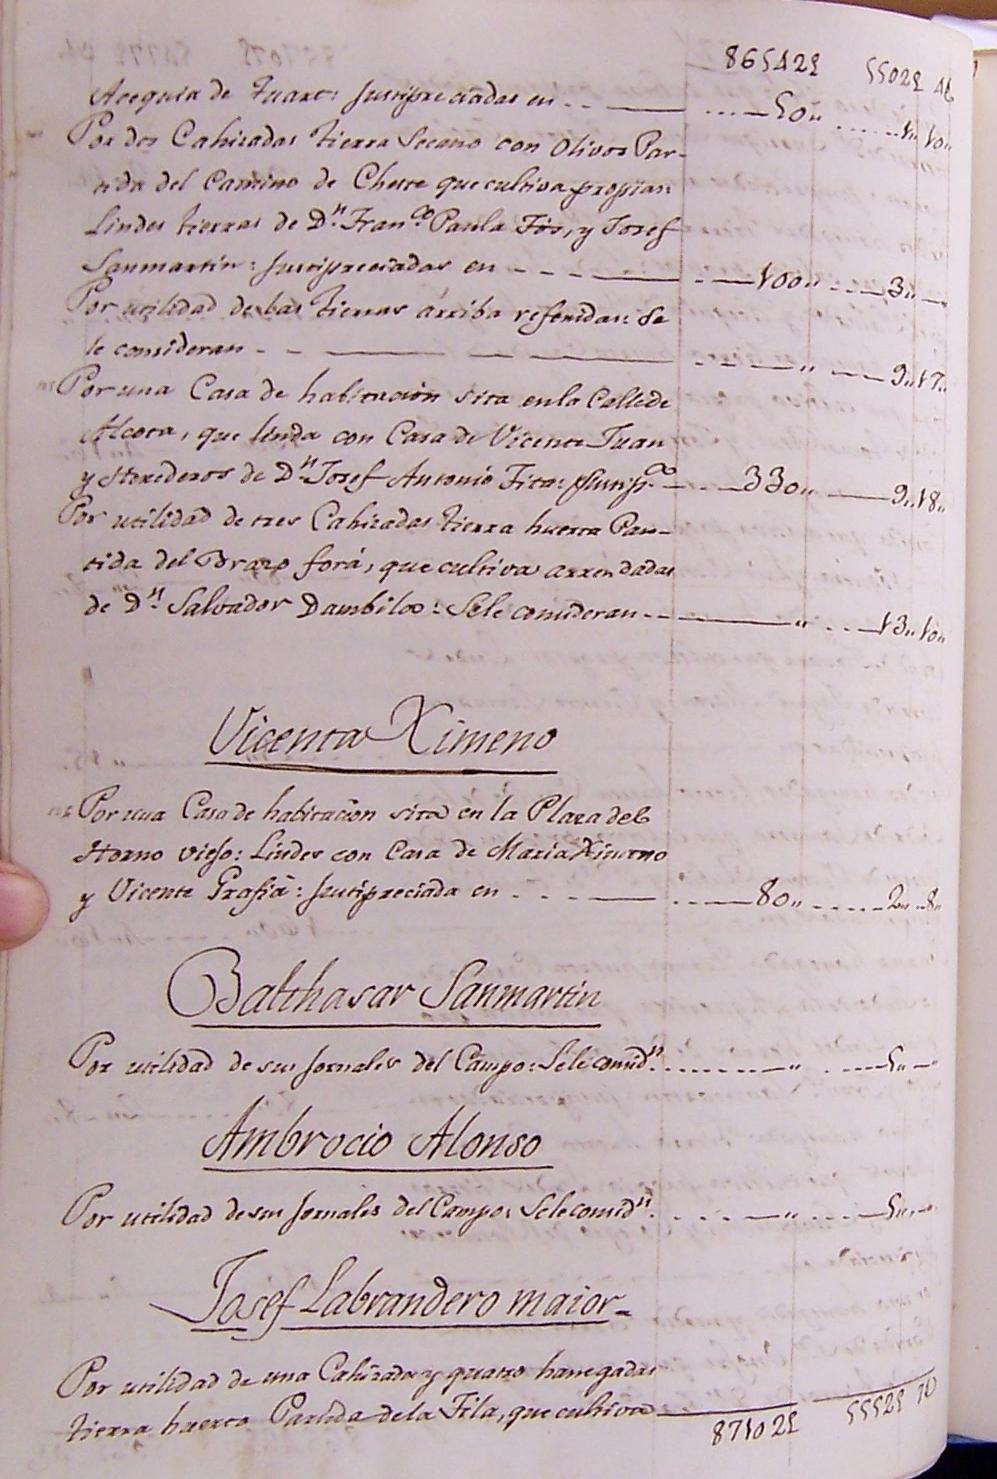 86542$ 5502$ 14
Acequia de Tuaxe: Justipreciadas en .. —— .... 50,, ...... 1,, 10,,
Por dos Cahizadas tierra Secano con Olivos Par-
tida del Camino de Cheste que cultiva propian:
Lindes tierras de Dn. Franco. Paula Fos, y Josef
Sanmartin: Justipreciadas en - - - —— 100,, ... 3,, —
Por utilidad de las tierras arriba referidas: Se
le consideran - - —— — —— ,, — 9,, 17,,
Por una Casa de habitacion sita en la Calle de
Alcora, que linda con Casa de Vicente Juan
y Herederos de Dn. Josef Antonio Fita: —— 330,, —— 9,, 18,,
Por utilidad de tres Cahizadas tierra huerta Par-
tida del Brazo forá, que cultiva arrendadas
de Dn. Salvador : Sele consideran - - —— ,, ... 13,, 10,,
Vicenta Ximeno
Por una Casa de habitacion sita en la Plaza del
Horno viejo: Lindes con Casa de Maria Ximeno
y Vicente Grafiá: Justipreciada en . - - —— .... 80,, ..... 2,, 8,,
Balthasar Sanmartin
Por utilidad de sus jornales del Campo: Sele considn. ........ ,, .... 5,, - ,,
Ambrocio Alonso
Por utilidad de sus jornales del Campo: Sele considn. ..... ,, .... 5,, - ,,
Josef Labrandero maior -
Por utilidad de una Cahizada y quatro hanegadas
tierra huerta Partida de la Fila, que cultiva
87102$ 5552$ 10